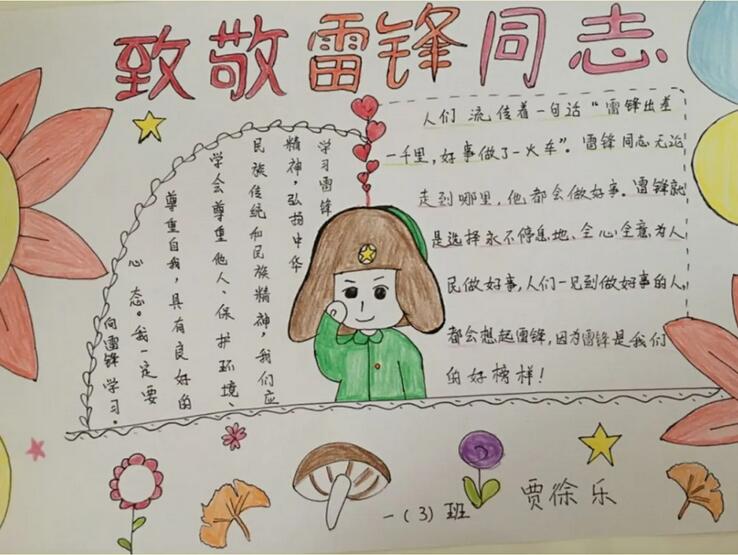 致敬雷锋同志
学习雷锋
精神，弘扬中华
民族传统和民族精神，我们应
学会尊重他人、保护环境、
尊重自我，具有良好的
心态。我一定要
向雷锋学习。
人们流传着一句话“雷锋出差
一千里，好事做了一火车”。雷锋同志无论
走到哪里，他都会做好事。雷锋就
是选择永不停息地、全心全意为人
民做好事，人们一见到做好事的人，
都会想起雷锋，因为雷锋是我们
的好榜样！
一（3）班 贾徐乐